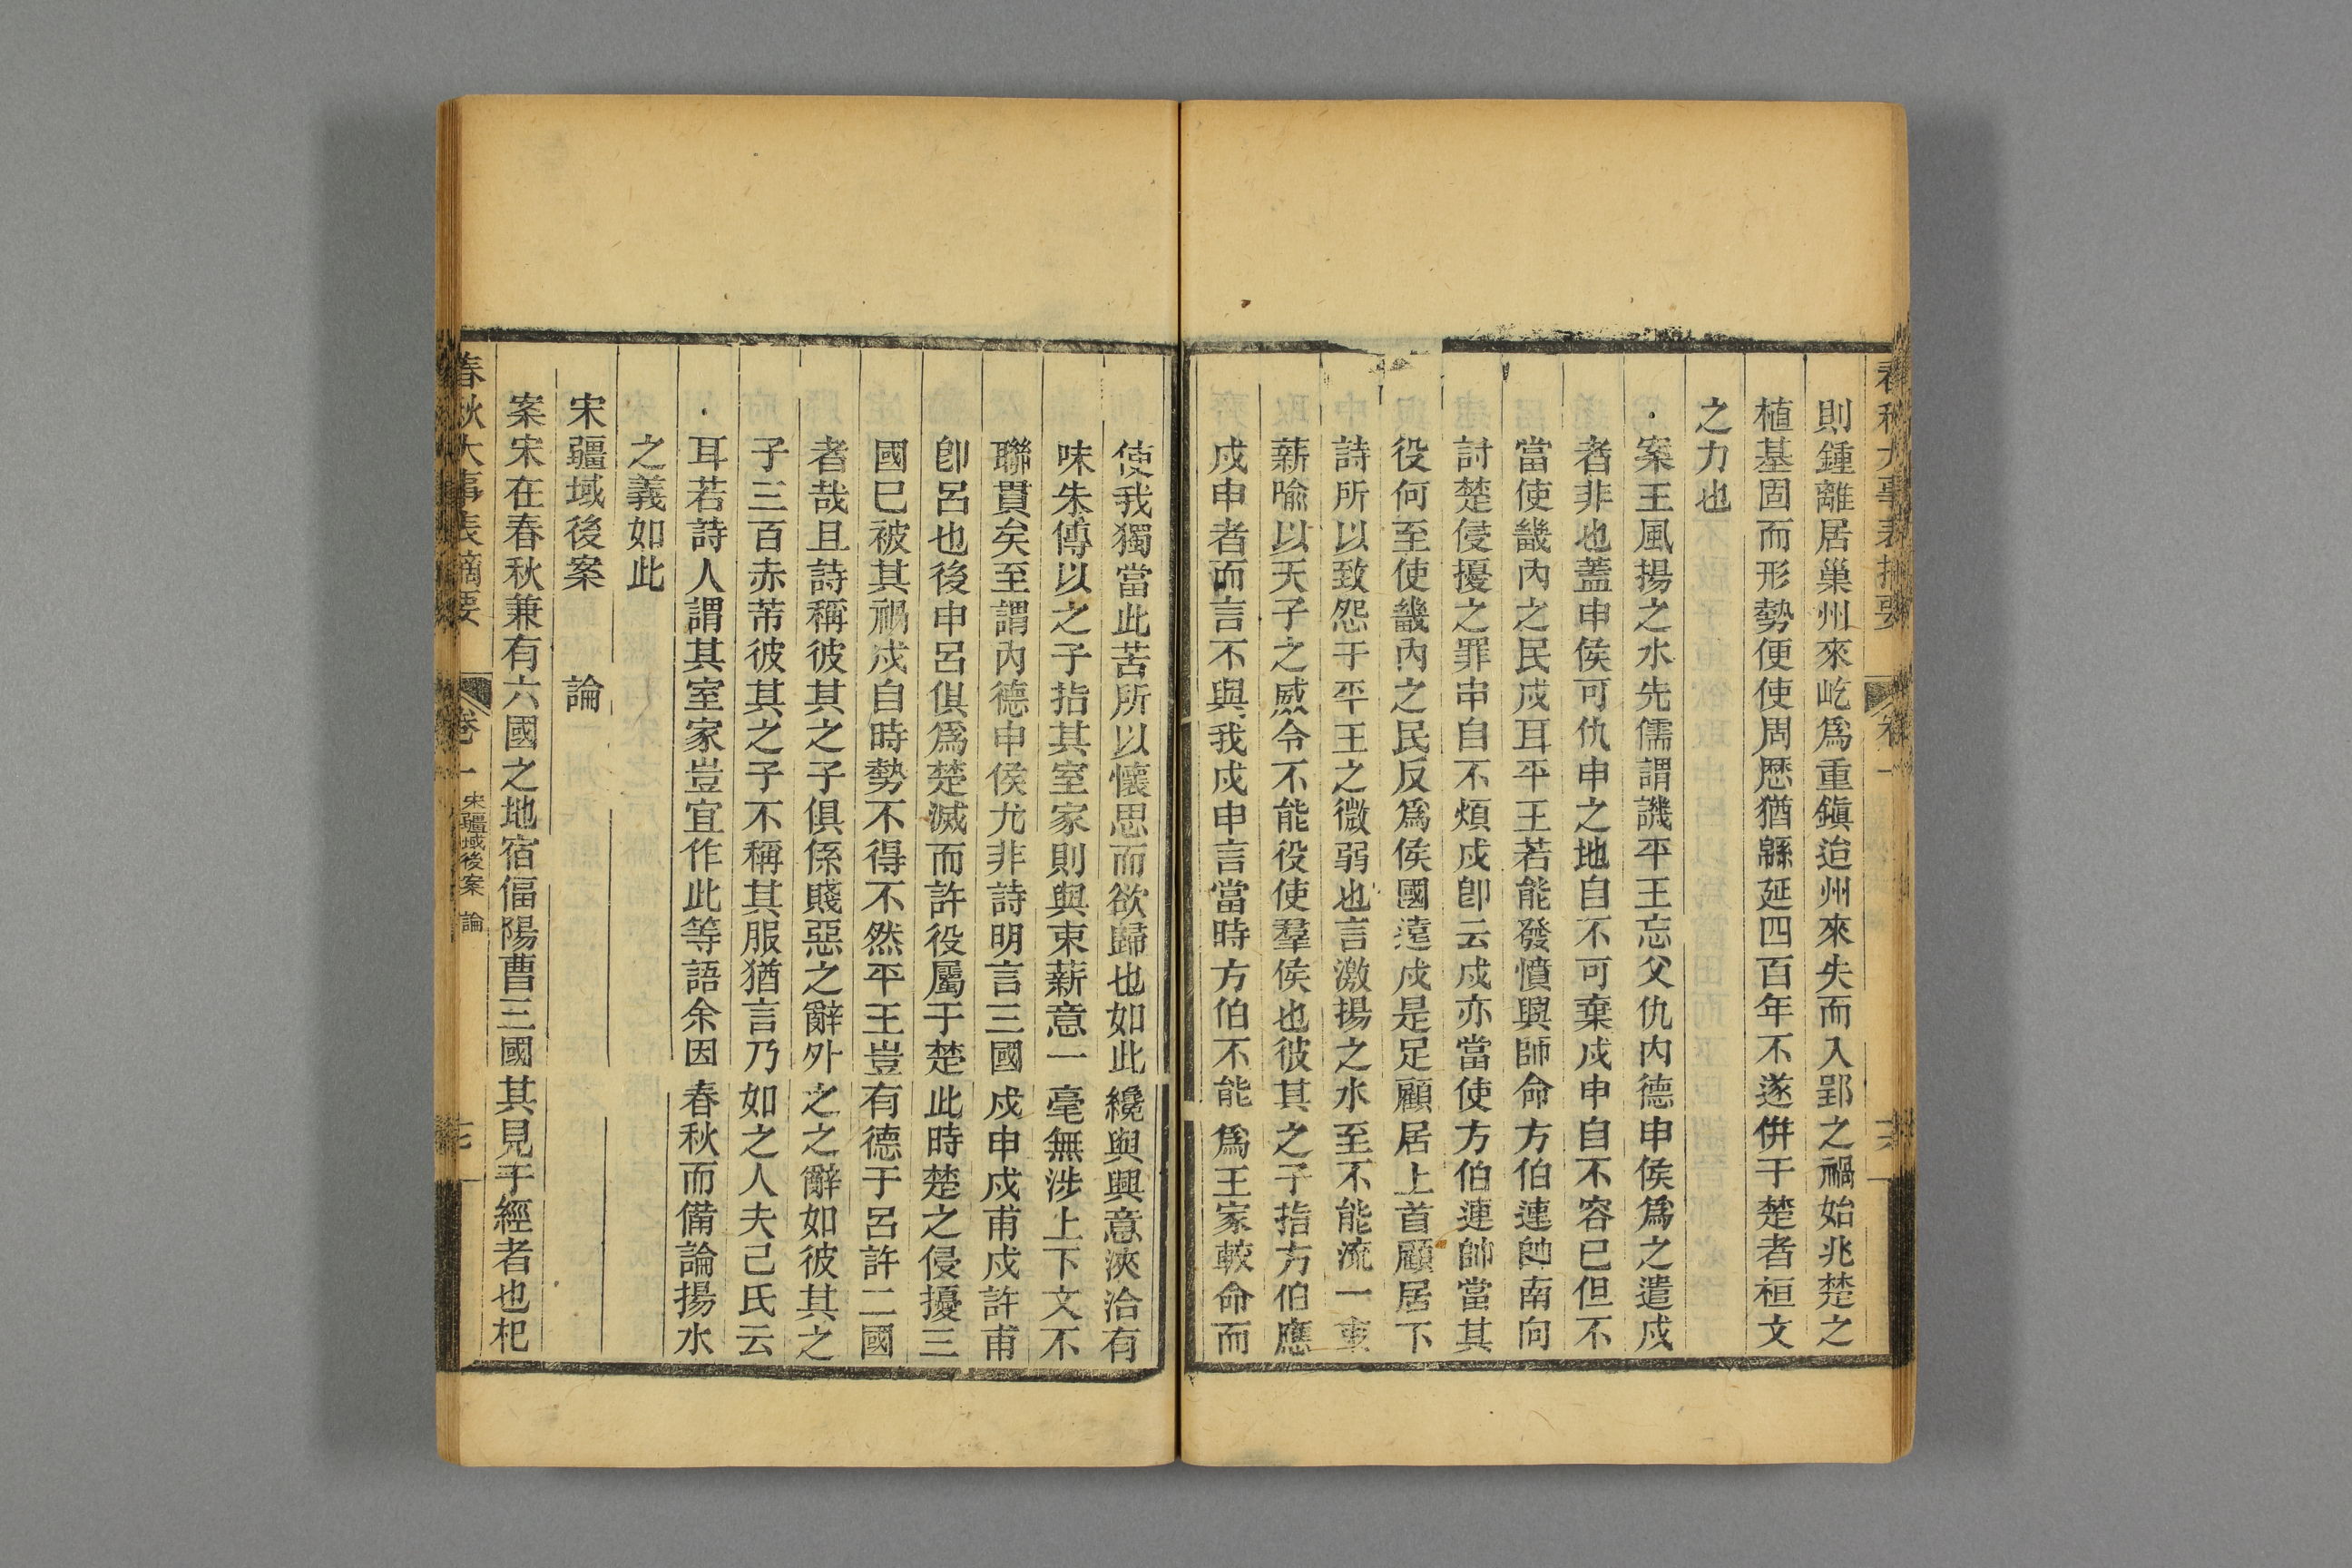 則鍾離居巢州來屹爲重鎭迨州來失而入郢之禍始兆楚之
植基固而形勢便使周歴猶緜延四百年不遂併于楚者桓文
之力也
案王風揚之水先儒謂譏平王忘父仇内德申侯爲之遣戍
者非也蓋申侯可仇申之地自不可棄戍申自不容已但不
當使畿内之民戍耳平王若能發憤興師命方伯連帥南向
討楚侵擾之罪申自不煩戍卽云戍亦當使方伯連帥當其
役何至使畿内之民反爲侯國遠戍是足顧居上首顧居下
詩所以致怨于平王之微弱也言激揚之水至不能流一束
薪喻以天子之威令不能役使羣侯也彼其之子指方伯應
戍申者而言不與我戍申言當時方伯不能爲王家較命而
使我獨當此苦所以懷思而欲歸也如此纔與興意浹洽有
味朱傳以之子指其室家則與束薪意一毫無涉上下文不
聯貫矣至謂内德申侯尤非詩明言三國戍申戍甫戍許甫
卽呂也後申呂俱爲楚滅而許役屬于楚此時楚之侵擾三
國已被其禍戍自時勢不得不然平王豈有德于呂許二國
者哉且詩稱彼其之子俱係賤惡之辭外之之辭如彼其之
子三百赤芾彼其之子不稱其服猶言乃如之人夫己氏云
耳若詩人謂其室家豈宜作此等語余因春秋而備論揚水
之義如此
宋疆域後案 論
案宋在春秋兼有六國之地宿偪陽曹三國其見于經者也杞
春秋大事表摘要 卷一 宋疆域後案 論